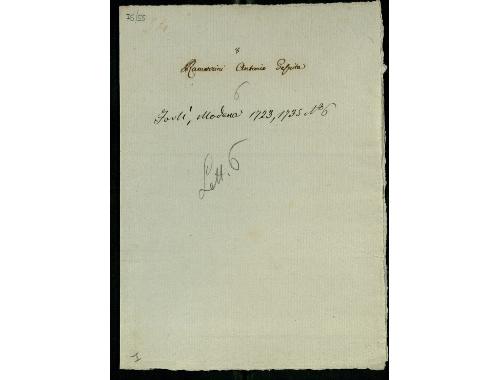 75/55
8
Ramazzini Antonio Gesuita
6
Forlì, Modena 1723, 1735 N.° 6
Lett. 6
1